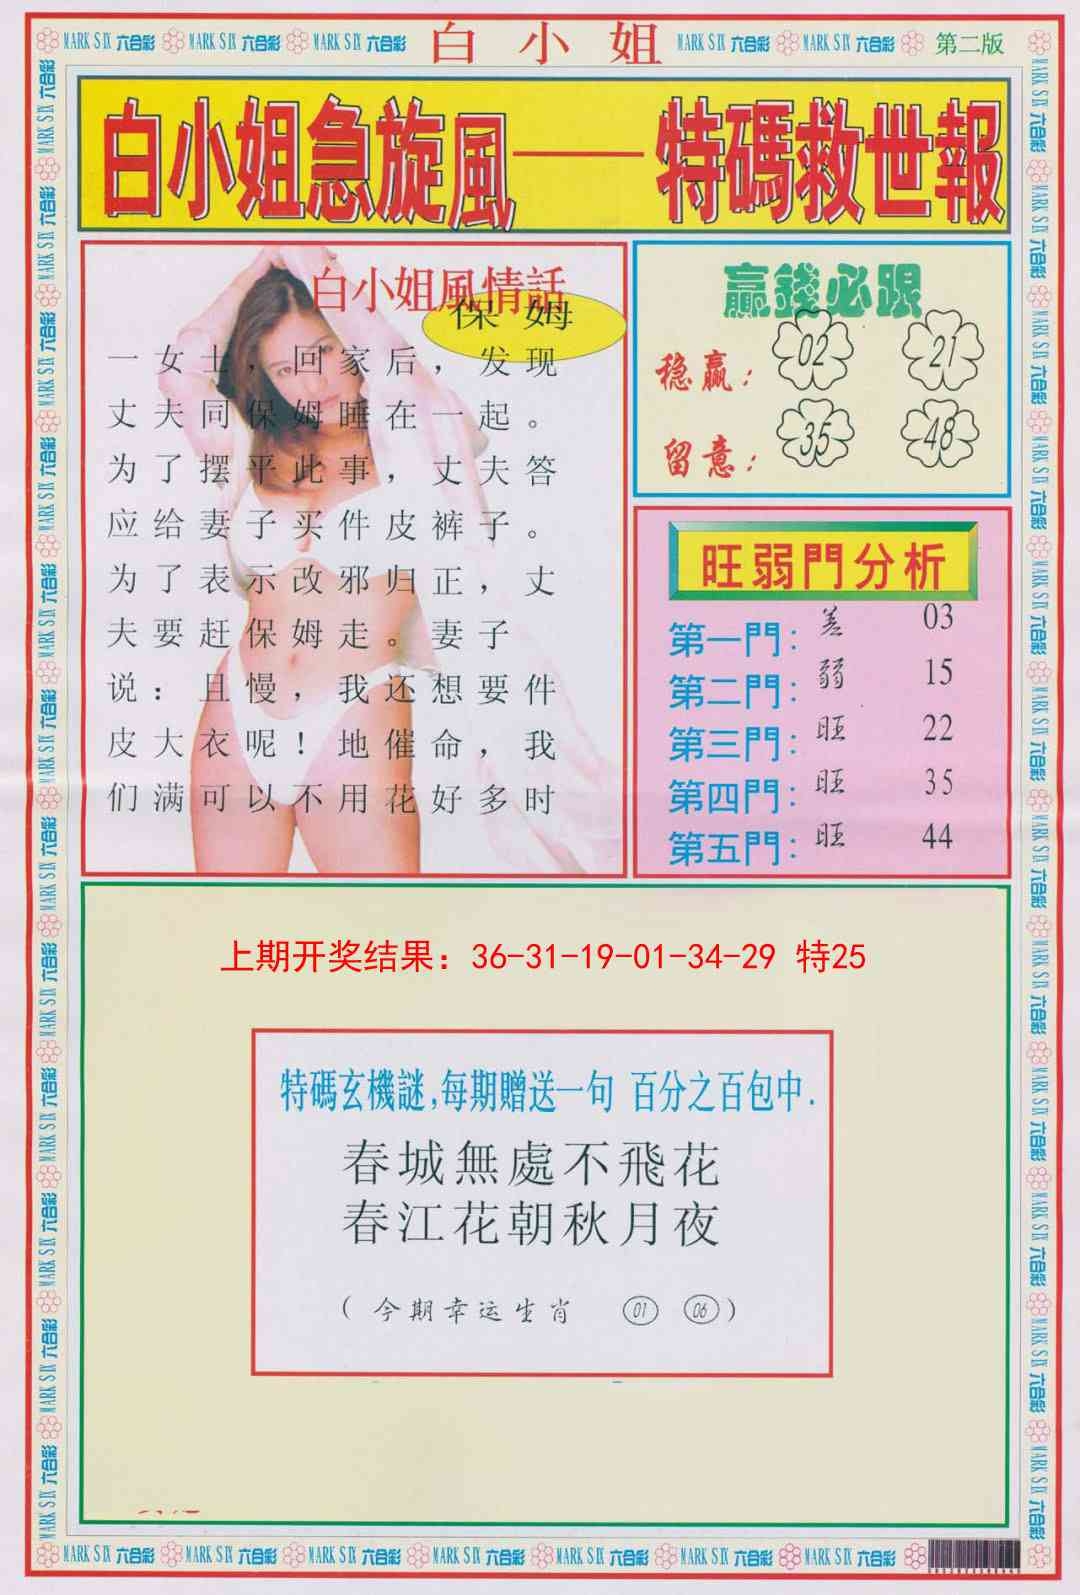 MARK SIX 六合彩 MARK SIX 六合彩 MARK SIX 六合彩 白小姐 MARK SIX 六合彩 MARK SIX 六合彩 第二版
白小姐急旋風——特碼救世報
白小姐風情話
保姆
一女士，回家后，发现
丈夫同保姆睡在一起。
为了摆平此事，丈夫答
应给妻子买件皮裤子。
为了表示改邪归正，丈
夫要赶保姆走。妻子
说：且慢，我还想要件
皮大衣呢！地催命，我
们满可以不用花好多时
贏錢必跟
稳赢： 02 21
留意： 35 48
旺弱門分析
第一門：差 03
第二門：弱 15
第三門：旺 22
第四門：旺 35
第五門：旺 44
上期开奖结果：36-31-19-01-34-29 特25
特碼玄機謎,每期贈送一句 百分之百包中.
春城無處不飛花
春江花朝秋月夜
(今期幸运生肖 01 06)
MARK SIX 六合彩 MARK SIX 六合彩 MARK SIX 六合彩 MARK SIX 六合彩 MARK SIX 六合彩 MARK SIX 六合彩 MARK SIX 六合彩